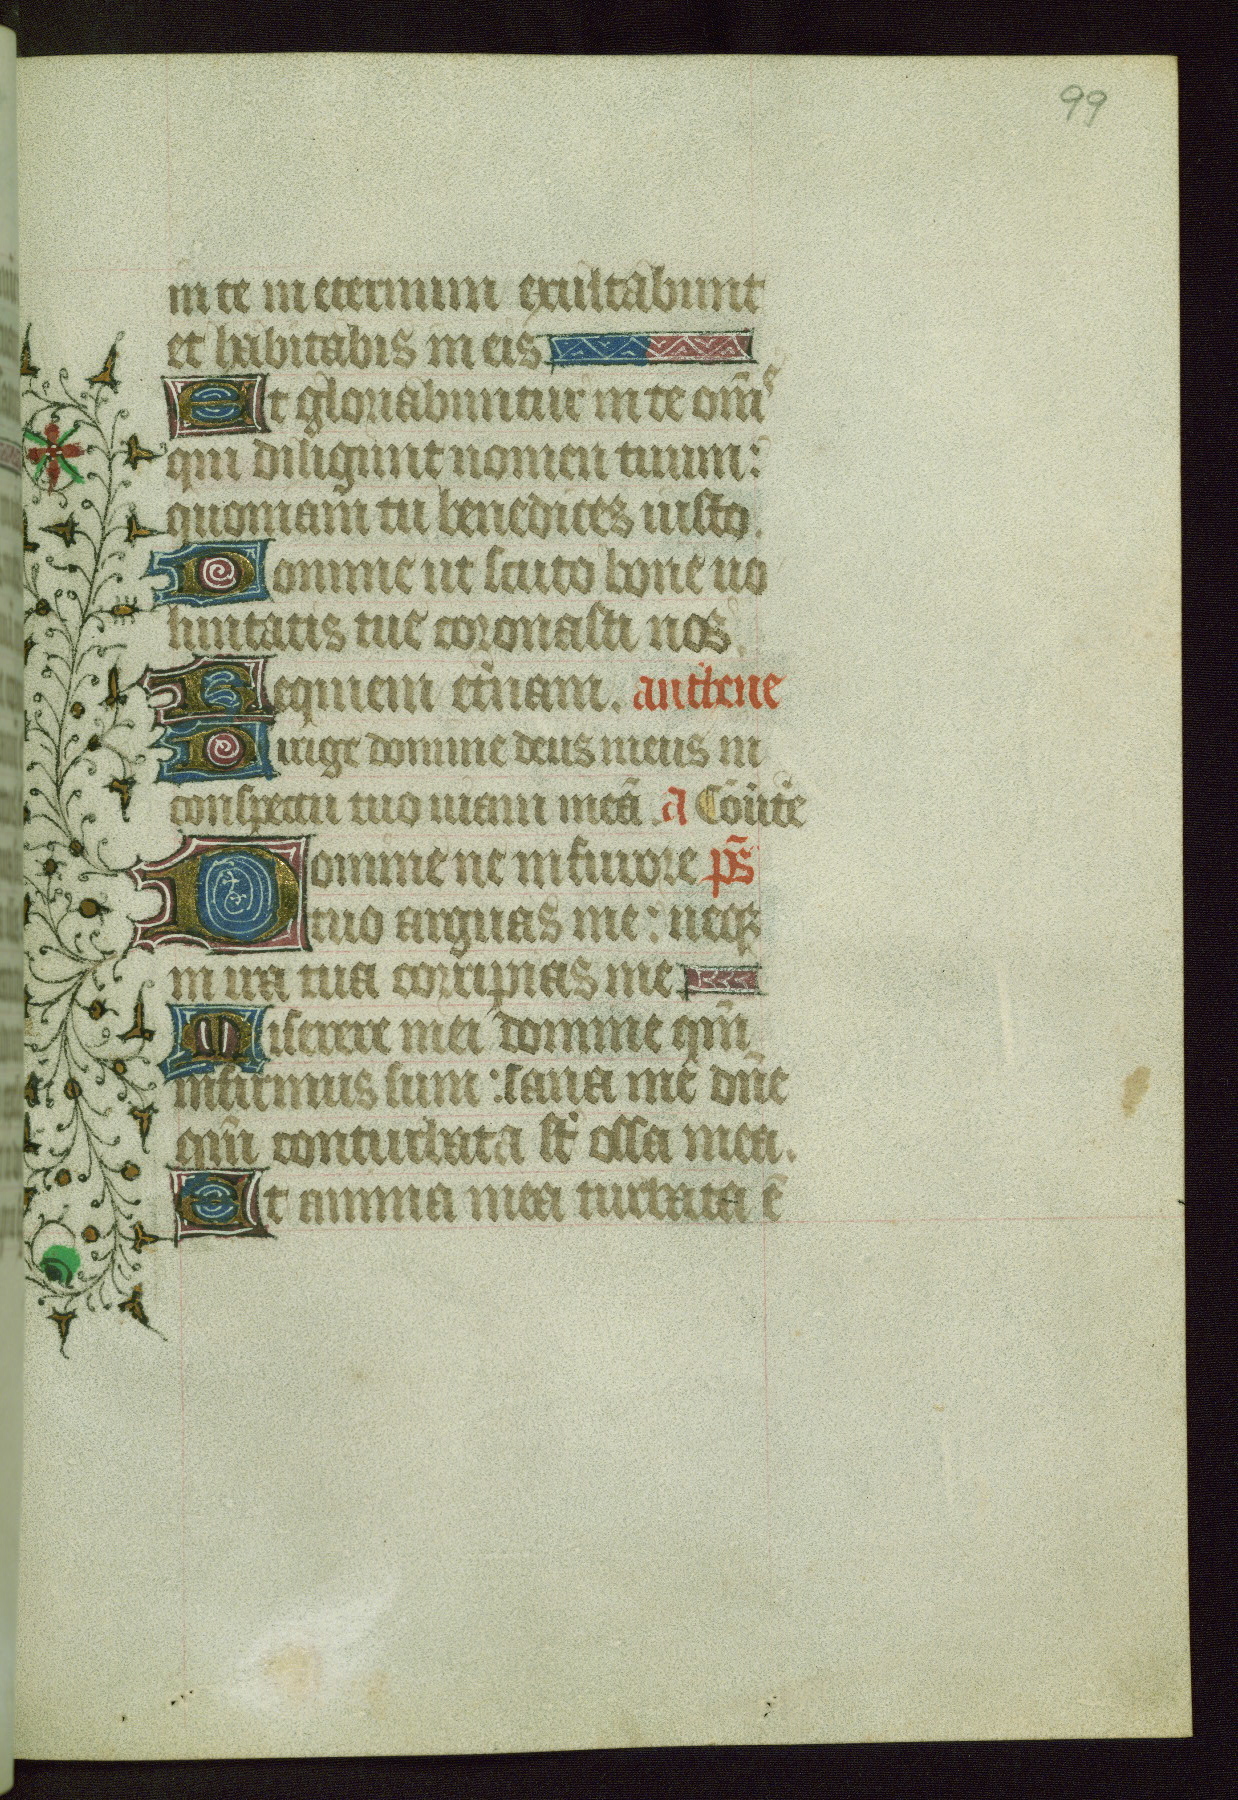 99
in te in eternum exultabunt
et habitabis in eis
Et gloriabuntur in te om̄s
qui diligunt nomen tuum:
quoniam tu benedices iusto.
Domine ut scuto bone uo
luntatis tue coronasti nos.
Requiem et̉nam. anthene
Dirige domine deus meus in
conspectu tuo uiam meā. a Conu̓te
Domine ne in furore ps̄
tuo arguas me: neqꝫ
in ira tua corripias me
Miserere mei domine qm̄
infirmus sum: sana me dn̄e
qm̄ conturbata st̄ ossa mea.
Et anima mea turbata ē